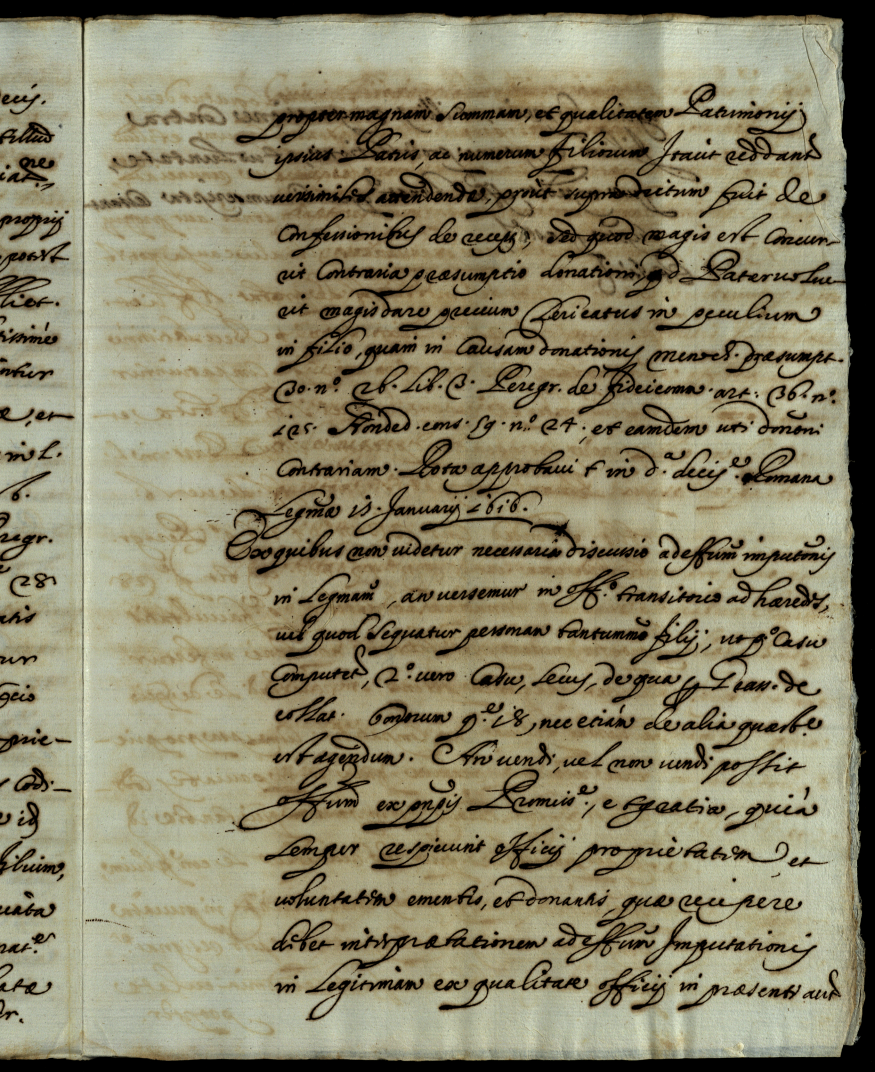 propter magnam Summam, et qualitatem Patrimonij
ipsius Patris, ac numerum filiorum Itaut reddant.r
verisimiles attendendæ, prout supra dictum fuit de
Confessionibus de recep.; sed quod magis est Concur-
rit Contraria præsumptio donationi, qd Pater volue-
rit magis dare precium Officiatus in peculium
in filio, quam in Causam donationis menoch. præsumpt.
30. n.o 26. lib. 3. Peregr. de fideicomm. art. 36. n.o
125. Honded. cons. 59. n.o 24., et eamdem uti donõni
Contrariam Rota approbavit in d.a decis.e Romana
Legm̃a 15. Januarij 1616.
Ex quibus non videtur necessaria discussio ad effũm imputõnis
in Legmam̃, an versemur in off.o transitorio ad hæredes,
vel quod sequatur personam tantummõ filij, ut p.o Casu
Computet.r, 2.o vero Casu, secus, de qua p Gram. de
collat. bonorum q.e 18, nec etiam de alia quæst.e
est agendum. An vendi, vel non vendi possit
offũm ex pnp̃ijs Promiss.e, et gratia, quia
semper respiciunt officij proprietatem et
voluntatem ementis, et donantis, quæ recipere
debet interpræetationem ad effũm Imputationis
in Legitimam ex qualitate officij in præsenti aut.
ecis.
proprij
potest
liet.
tissime
æ, et
in l.
6.
Peregr.
28.
atis
tur
prie-
Codi-
id
latæ